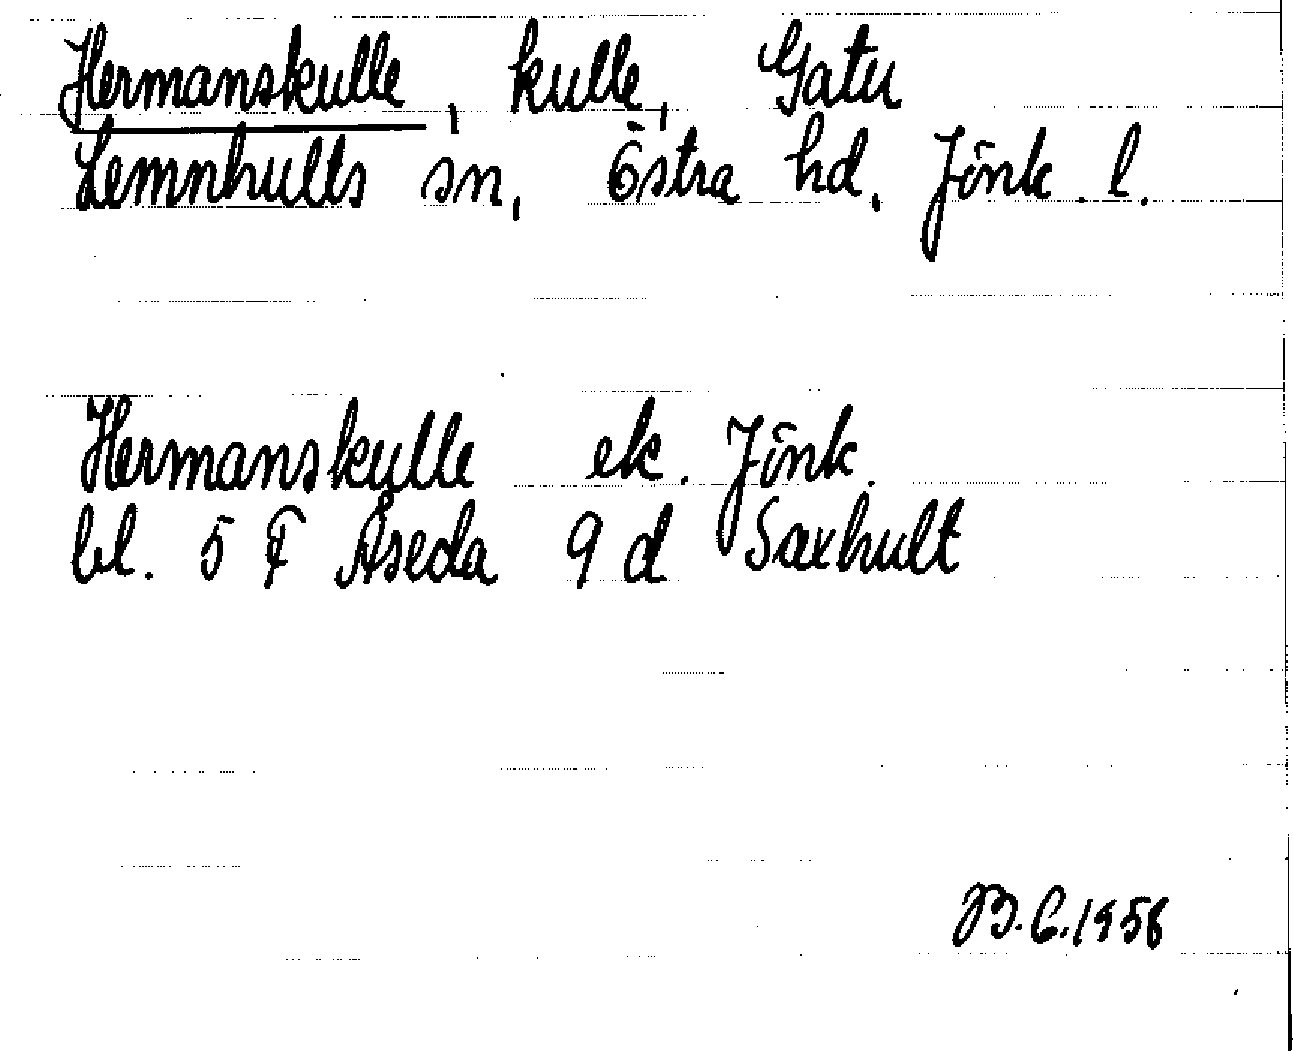 Hermanskulle, kulle, Gatu
Lemnhults sn, Östra hd, Jönk. l.
Hermanskulle ek. Jönk.
bl. 5 F Åseda 9 d Saxhult
B.C. 1956